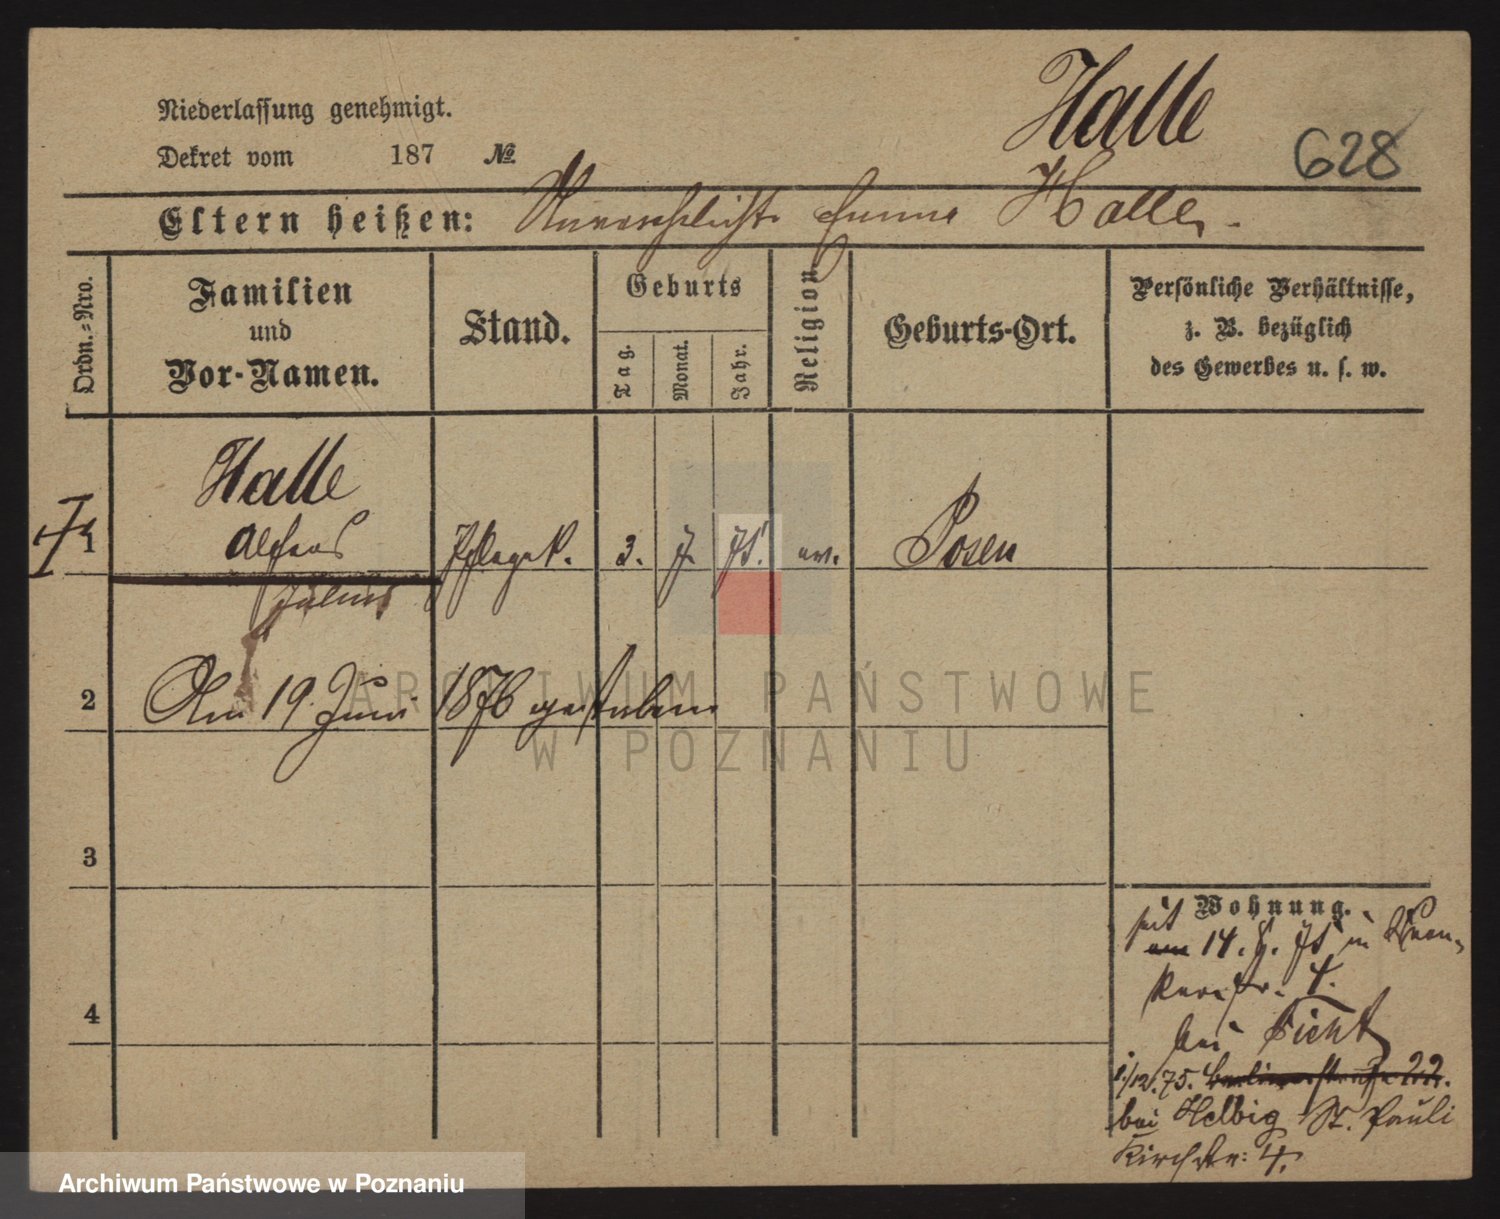 Niederlassung genehmigt.
Halle
628
Dekret vom 187 №
Eltern heißen: Unverehelichte Emma Halle.
Ordn.=Nro.
Familien
und
Vor-Namen.
Stand.
Geburts
Tag.
Monat.
Jahr.
Religion.
Geburts-Ort.
Persönliche Verhältnisse,
z. B. bezüglich
des Gewerbes u. s. w.
Halle
1 Alfred Pflegek. 3. 7. 75. ev. Posen
Julius
2 Am 19. Juni 1876 gestorben
3
4
Wohnung.
seit
am 14. 75 in
str. 4.
bei Ficht
1/12.75. Berlinerstraße 22.
bei Helbig St. Pauli
Kirchstr: 4.
ARCHIWUM PAŃSTWOWE
W POZNANIU
Archiwum Państwowe w Poznaniu